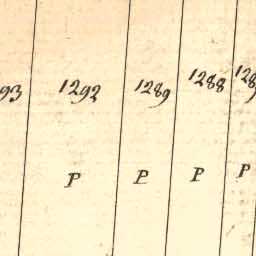 93 1292 1289 1288 128
P P P P